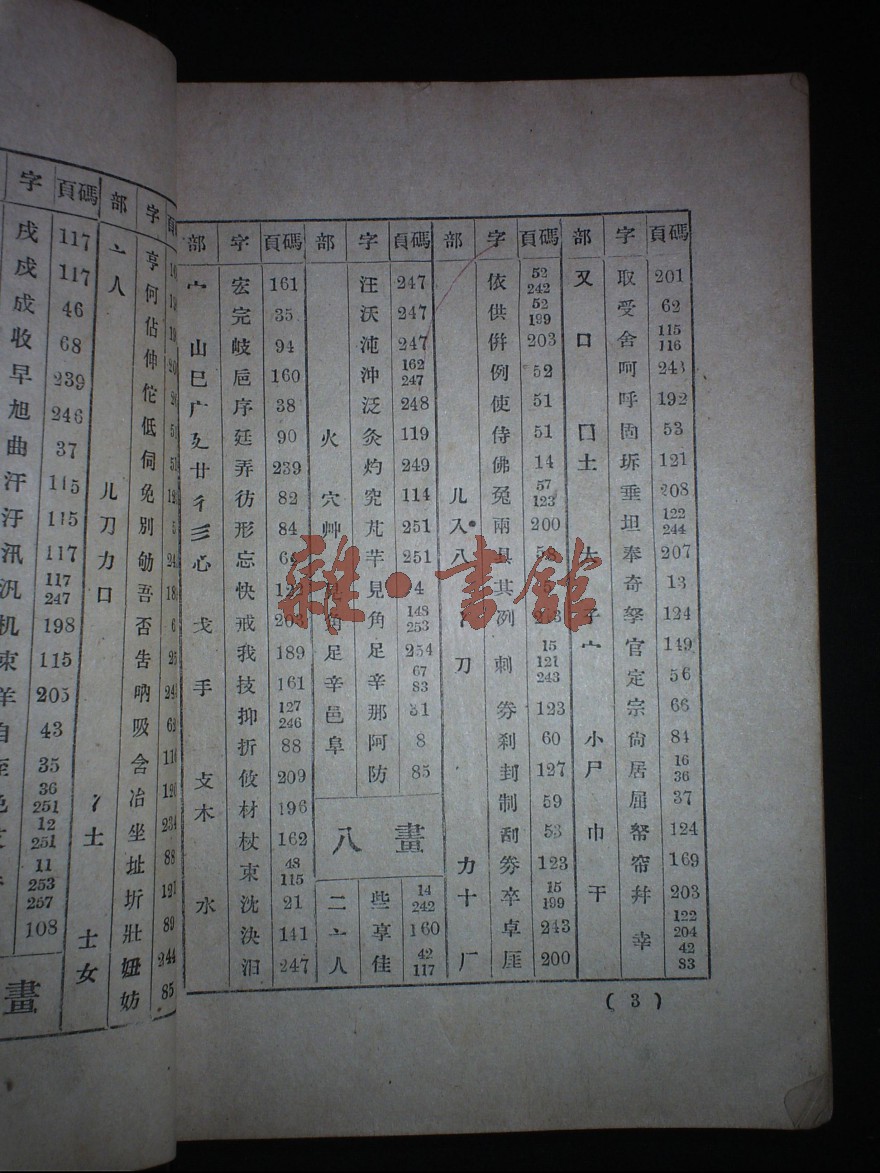 字 頁碼 部 字
戌 117
117
成 46
收 68
早 239
旭 246
曲 37
汗 115
汙 115
汛 117
汎 117 247
机 198
束 115
羊 205
43
35
36 251
12 251
11 253 257
108
畫
亠 亨
人 何
佔
伸
佗
低
伺
儿 免
刀 別
力 劬
口 吾
否
告
吶
吸
含
冫 冶
土 坐 234
址 88
圻 121
士 壯 89
女 妞 244
妨 85
部 字 頁碼
宀 宏 161
完 35
山 岐 94
巳 巵 160
广 序 38
廴 廷 90
廾 弄 239
彳 彷 82
彡 形 84
心 忘
快 122
戈 戒 203
我 189
手 技 161
抑 127 246
折 88
攴 攸 209
木 材 196
杖 162
束 48 115
水 沈 21
決 141
汨 247
部 字 頁碼
汪 247
沃 247
沌 247
沖 162 247
泛 248
火 灸 119
灼 249
穴 究 114
艸 芃 251
芉 251
見 見 4
角 角 148 253
足 足 254
辛 辛 67 83
邑 那 31
阜 阿 8
防 85
八畫
二 些 14 242
亠 享 160
人 佳 42 117
部 字 頁碼
依 52 242
供 52 199
併 203
例 52
使 51
侍 51
佛 14
儿 兔 57 123
入 兩 200
八 具 58
其
冫 冽 243
刀 刺 15 121 243
券 123
刹 60
刲 127
制 59
刮 53
力 劵 123
十 卒 15 199
卓 243
厂 厓 200
部 字 頁碼
又 取 201
受 62
口 舍 115 116
呵 243
呼 192
囗 固 53
土 坼 121
垂 208
坦 122 244
大 奉 207
奇 13
子 孥 124
宀 官 149
定 56
宗 66
小 尙 84
尸 居 16 36
屈 37
巾 帑 124
帘 169
干 幷 203
幸 122 204 42 83
( 3 )
雜·書館